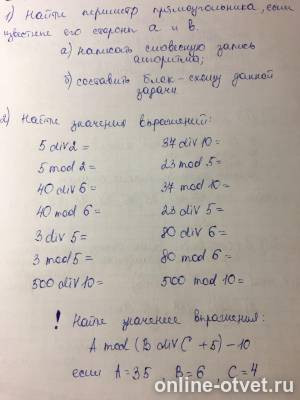 1) Найти периметр прямоугольника, если
известны его стороны a и в.
а) написать словесную запись
алгоритма;
б) составить блок-схему данной
задачи
2) Найти значения выражений:
5 div 2 = 37 div 10 =
5 mod 2 = 23 mod 5 =
40 div 6 = 37 mod 10 =
40 mod 6 = 23 div 5 =
3 div 5 = 80 div 6 =
3 mod 5 = 80 mod 6 =
500 div 10 = 500 mod 10 =
! Найти значение выражения:
A mod (B div C + 5) - 10
если A = 35, B = 6, C = 4
online-otvet.ru